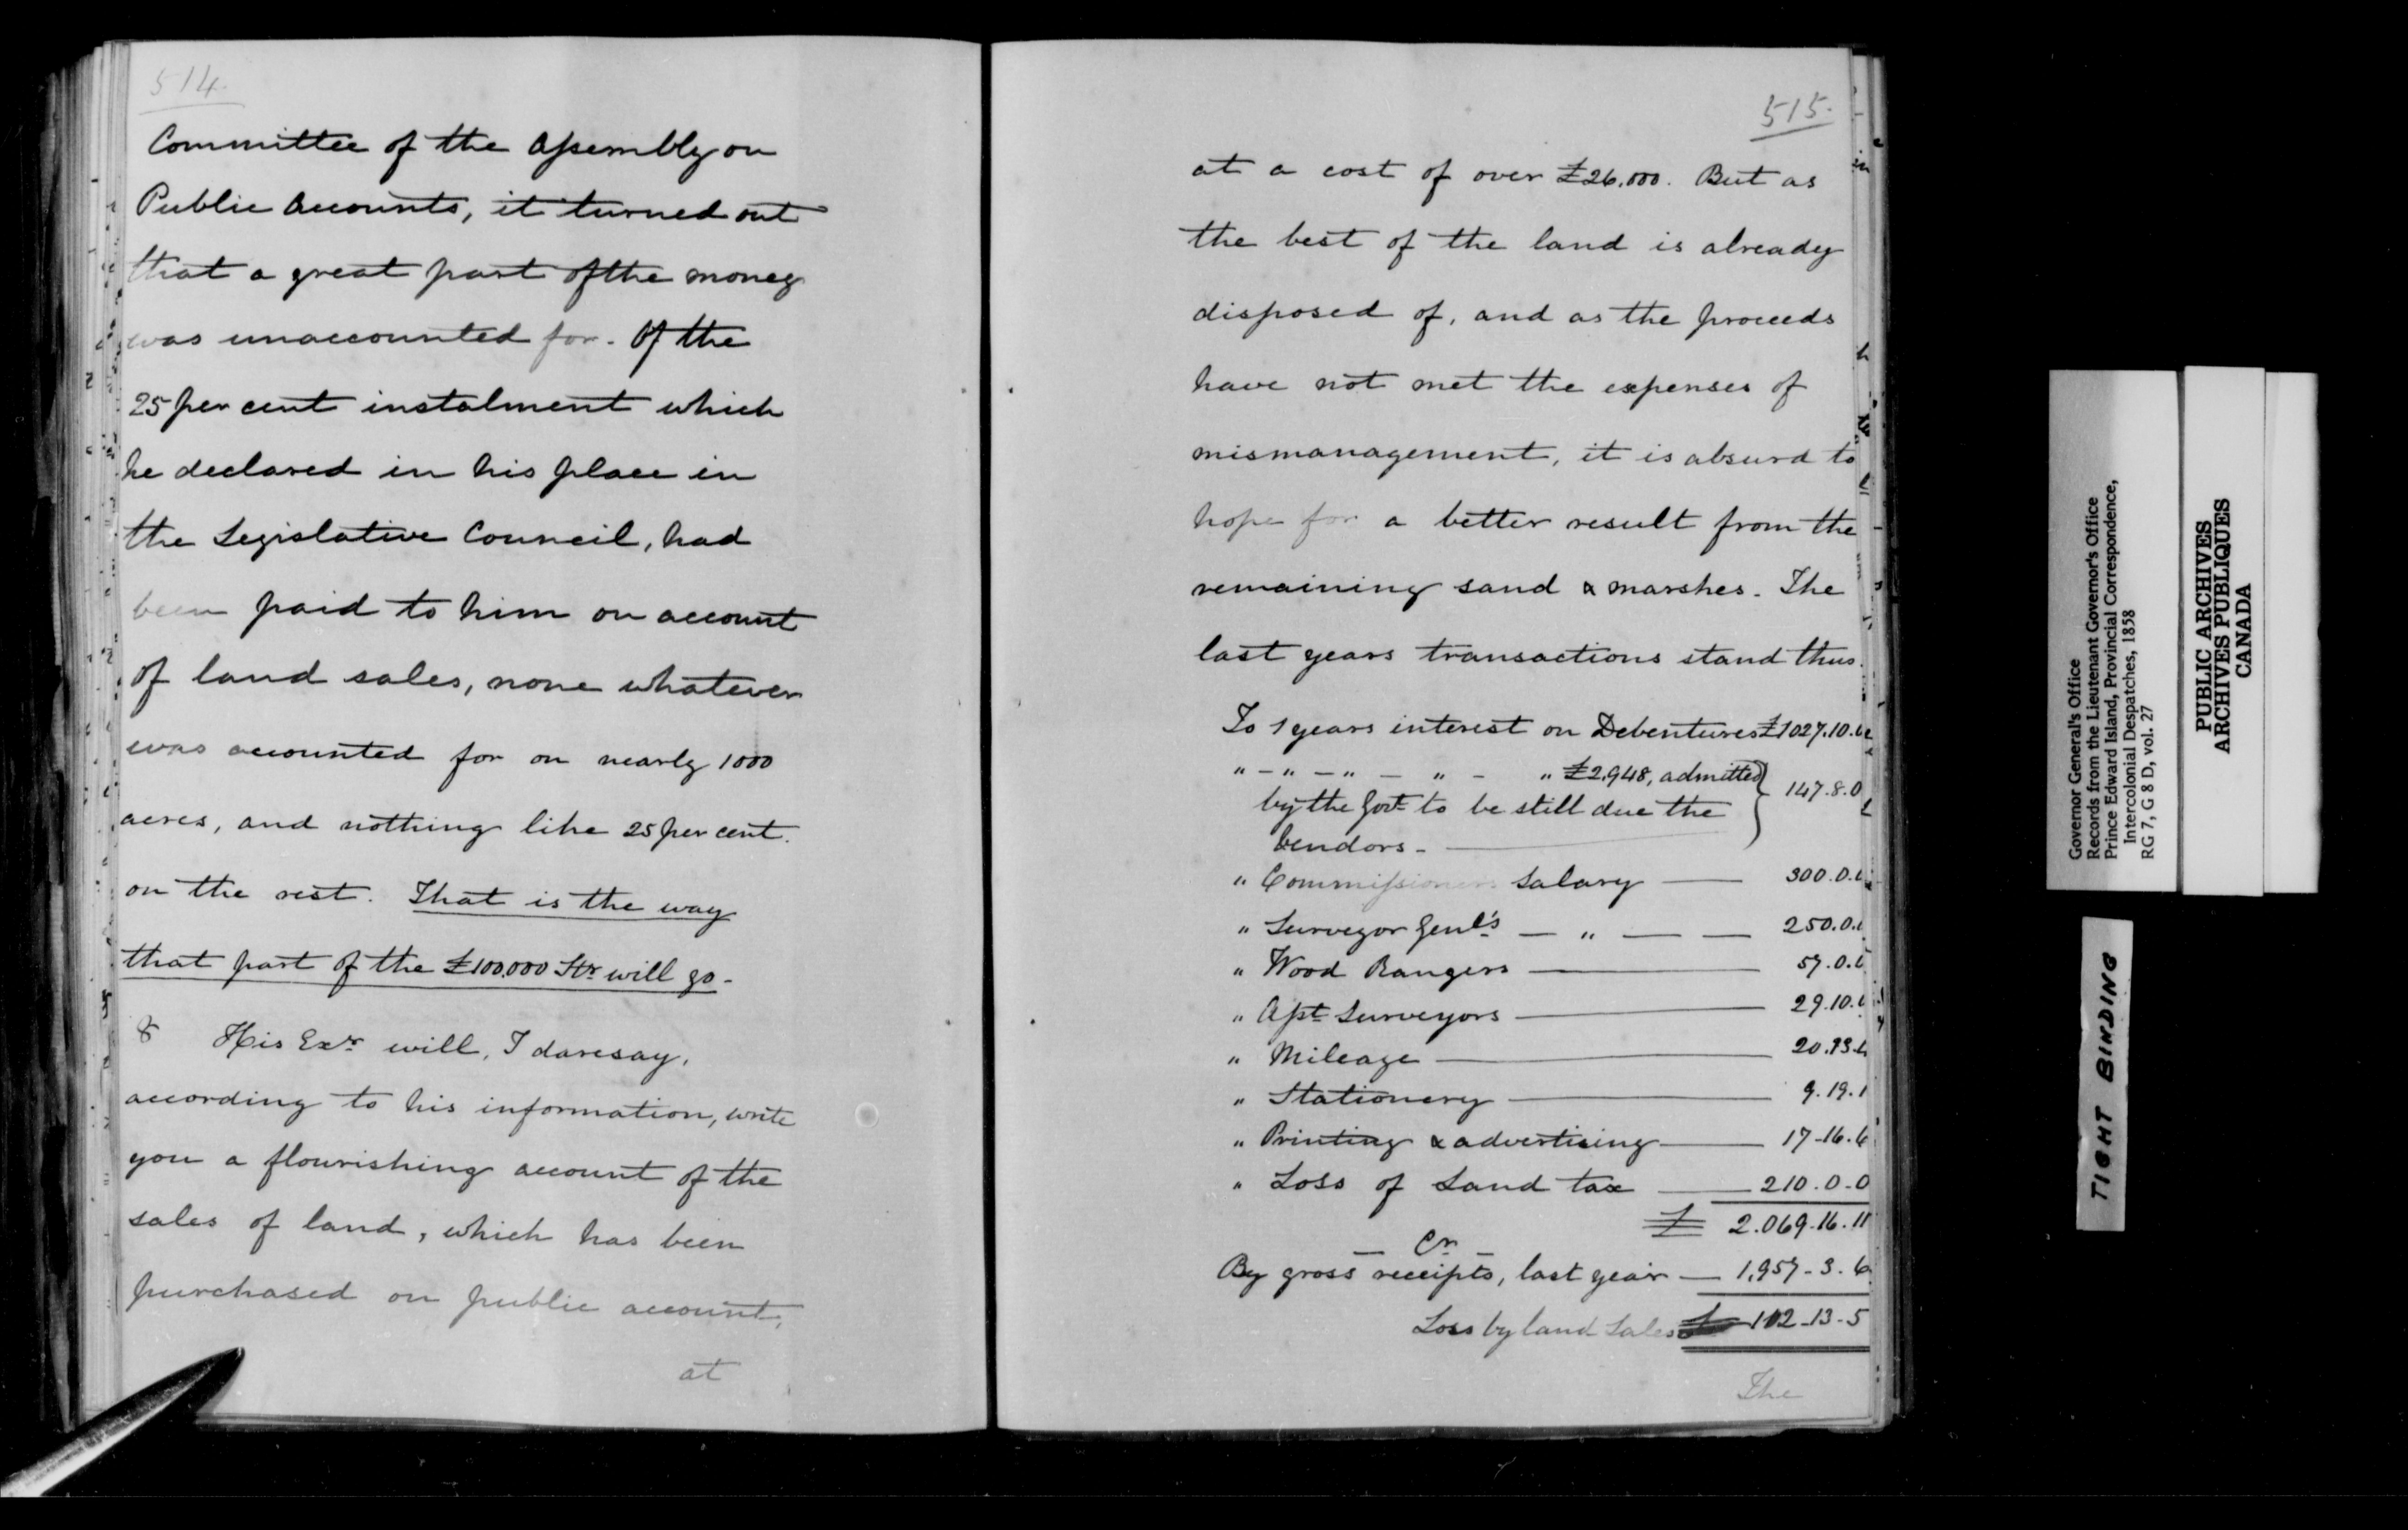 514.
Committee of the Assembly on
Public Accounts, it turned out
that a great part of the money
was unaccounted for. Of the
25 per cent instalment which
he declared in his place in
the Legislative Council, had
been paid to him on account
of land sales, none whatever
was accounted for on nearly 1000
acres, and nothing like 25 per cent.
on the rest. That is the way
that part of the £100,000 Stg will go.
8 His Exy will, I daresay,
according to his information, write
you a flourishing account of the
sales of land, which has been
purchased on public account,
at
515.
at a cost of over £26,000. But as
the best of the land is already
disposed of, and as the proceeds
have not met the expenses of
mismanagement, it is absurd to
hope for a better result from the
remaining sand & marshes. The
last years transactions stand thus.
To 1 years interest on Debentures £1027.10.
" - " - " - " - " £2,948, admitted
by the Govt to be still due the
Vendors - 147.8.0
" Commissioners Salary — 300.0.
" Surveyor Genl's — " — — 250.0.
" Wood Rangers — 57.0.
" Asst Surveyors — 29.10.
" Mileage — 20.13.
" Stationery — 9.19.1
" Printing & advertising — 17-16.6
" Loss of Land tax — 210.0-0
£ 2.069-16.11
— Cr —
By gross receipts, last year — 1,957-3.6
Loss by land Sales £ 112-13-5
The
Governor General's Office
Records from the Lieutenant Governor's Office
Prince Edward Island, Provincial Correspondence,
Intercolonial Despatches, 1858
RG 7, G 8 D, vol. 27
PUBLIC ARCHIVES
ARCHIVES PUBLIQUES
CANADA
TIGHT BINDING